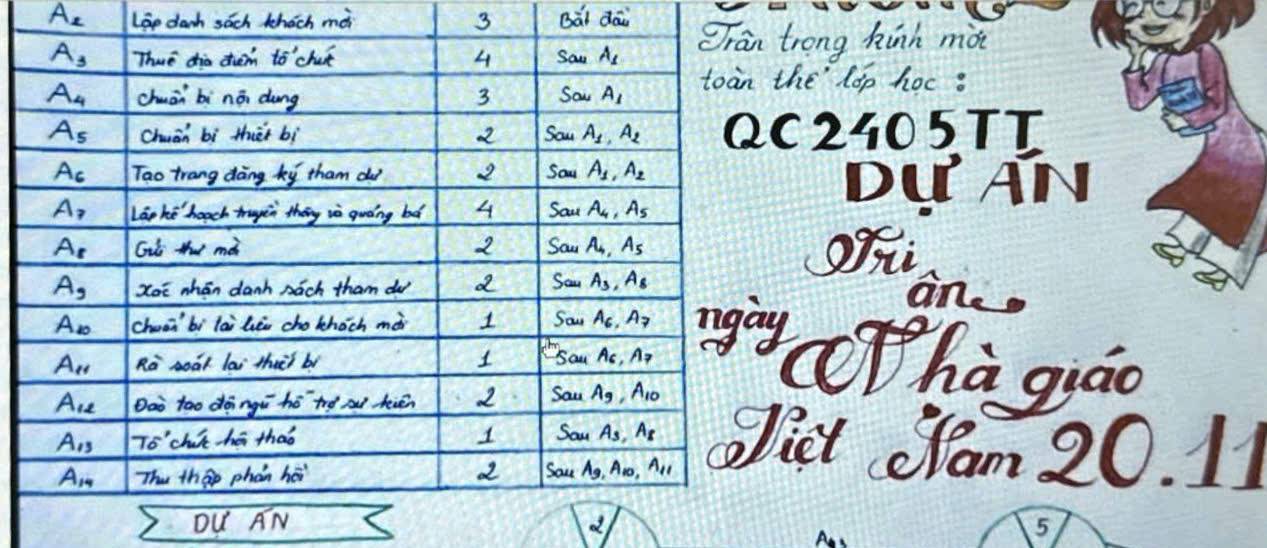 A2 Lập danh sách khách mời 3 Bắt đầu
A3 Thuê địa điểm tổ chức 4 Sau A1
A4 Chuẩn bị nội dung 3 Sau A1
A5 Chuẩn bị thiết bị 2 Sau A1, A2
A6 Tạo trang đăng ký tham dự 2 Sau A1, A2
A7 Lập kế hoạch truyền thông và quảng bá 4 Sau A4, A5
A8 Gửi thư mời 2 Sau A4, A5
A9 Xác nhận danh sách tham dự 2 Sau A3, A8
A10 Chuẩn bị tài liệu cho khách mời 1 Sau A6, A7
A11 Rà soát lại thiết bị 1 Sau A6, A7
A12 Đào tạo đội ngũ hỗ trợ sự kiện 2 Sau A9, A10
A13 Tổ chức hội thảo 1 Sau A3, A8
A14 Thu thập phản hồi 2 Sau A9, A10, A11
DỰ ÁN
2
Trân trọng kính mời
toàn thể lớp học :
QC2405TT
DỰ ÁN
Tri
ân
ngày
Nhà giáo
Việt Nam 20.11
5